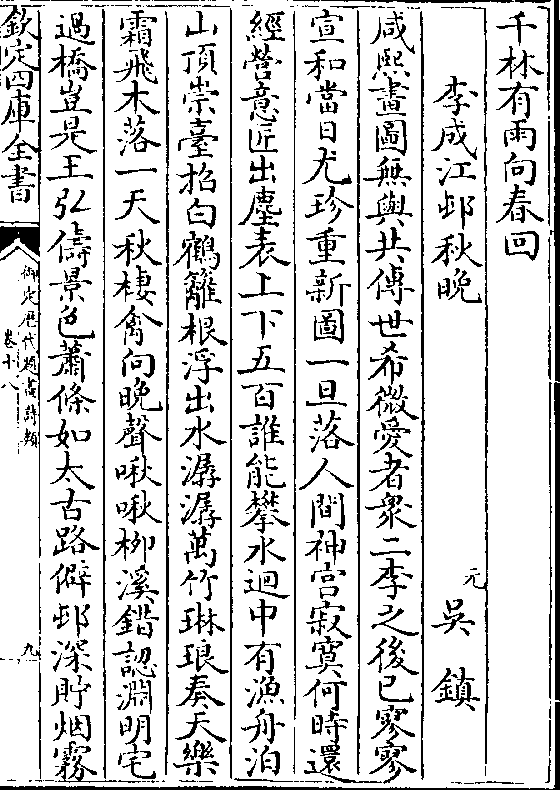 千林有雨向春回
李成江邨秋晚　元　吳鎮
咸熙畫圖無與共傳世希微愛者衆二李之後已寥寥
宣和當日尤珍重新圖一旦落人間神宫寂寞何時還
經營意匠出塵表上下五百誰能攀水迴中有漁舟泊
山頂崇臺招白鶴籬根浮出水潺潺萬竹琳琅奏天樂
霜飛木落一天秋棲禽向晚聲啾啾柳溪錯認淵明宅
過橋豈是王弘儔景色蕭條如太古路僻邨深貯烟霧
欽定四庫全書
御定歷代題畫詩類
卷十八
九